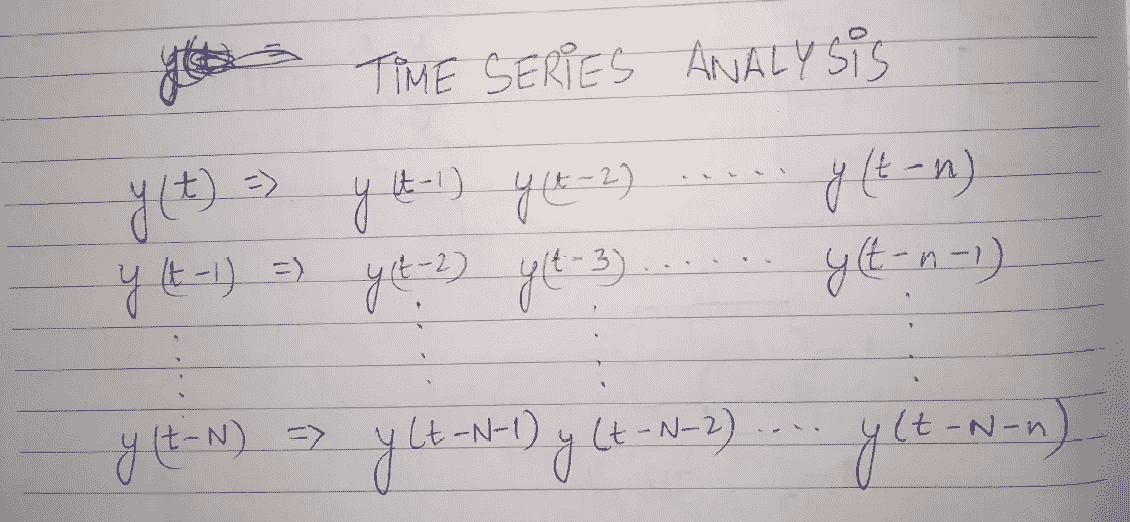 TIME SERIES ANALYSIS
y(t) => y(t-1) y(t-2) ..... y(t-n)
y(t-1) => y(t-2) y(t-3) ...... y(t-n-1)
y(t-N) => y(t-N-1) y(t-N-2) .... y(t-N-n)